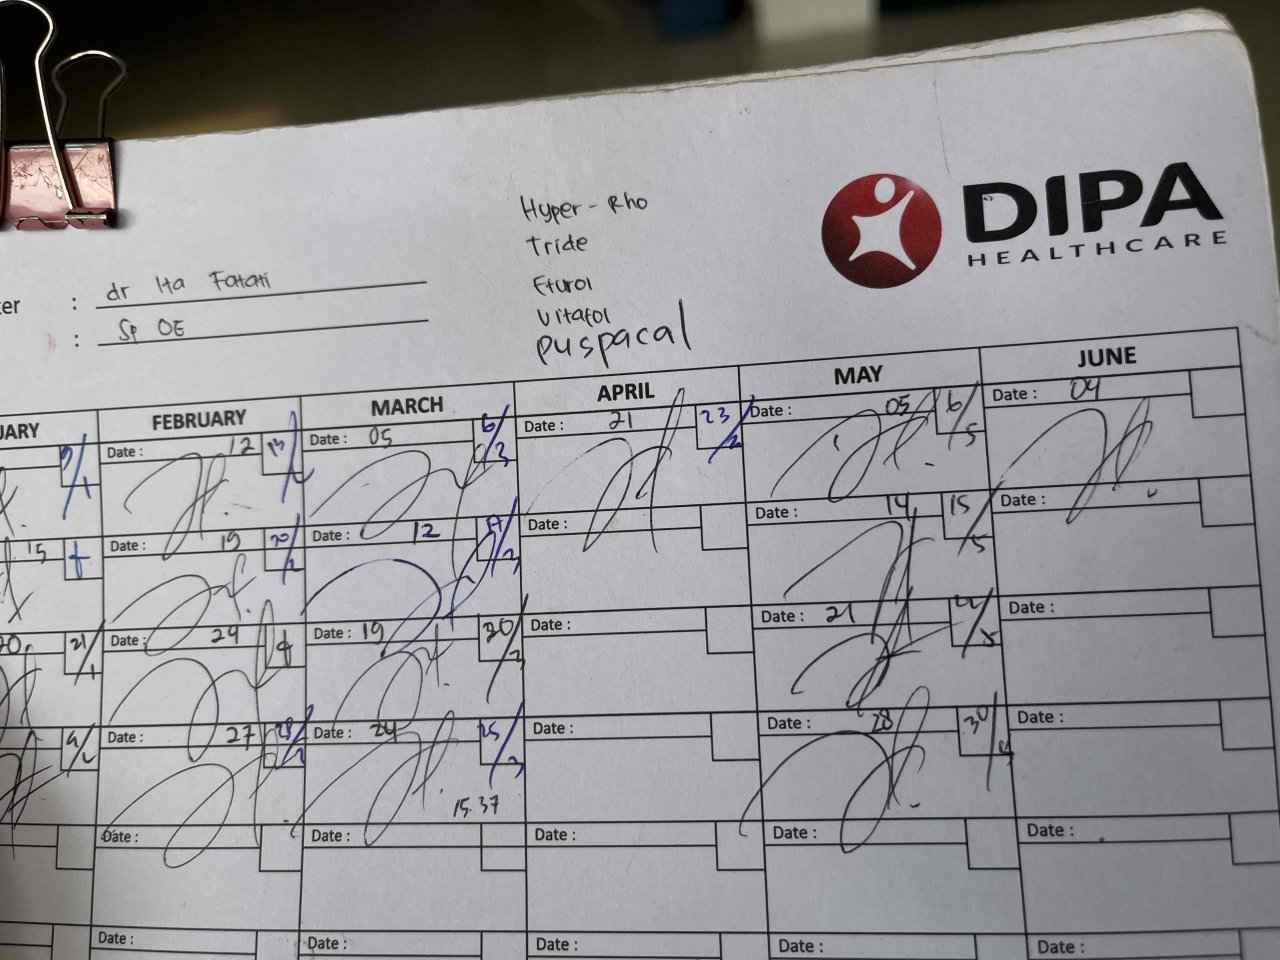 Hyper-Rho
Tride
Eturol
Vitafol
puspacal
DIPA
HEALTHCARE
ter : dr Ita Fatati
: Sp OE
UARY FEBRUARY MARCH APRIL MAY JUNE
Date : 12 Date : 05 6/3 Date : 21 23/2 Date : 05 6/5 Date : 04
15 Date : 19 20/2 Date : 12 Date : Date : 14 15/5 Date :
20 21/1 Date : 24 Date : 19 20/3 Date : Date : 21 22/5 Date :
Date : 27 28/2 Date : 24 25/3 Date : Date : 28 Date :
15.37
Date : Date : Date : Date : Date :
Date : Date : Date : Date : Date :